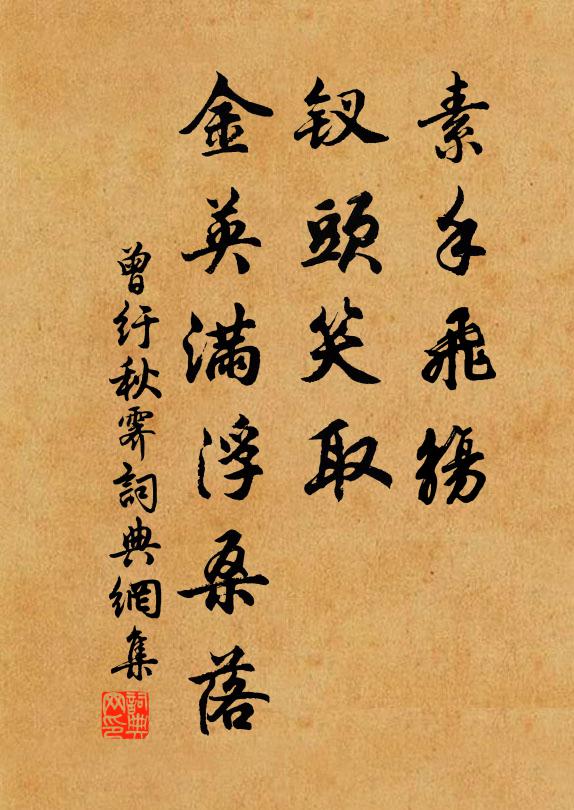 素手飛觴
釵頭笑取
金英滿浮桑落
曾紆秋霽詞典網集
詞典网印